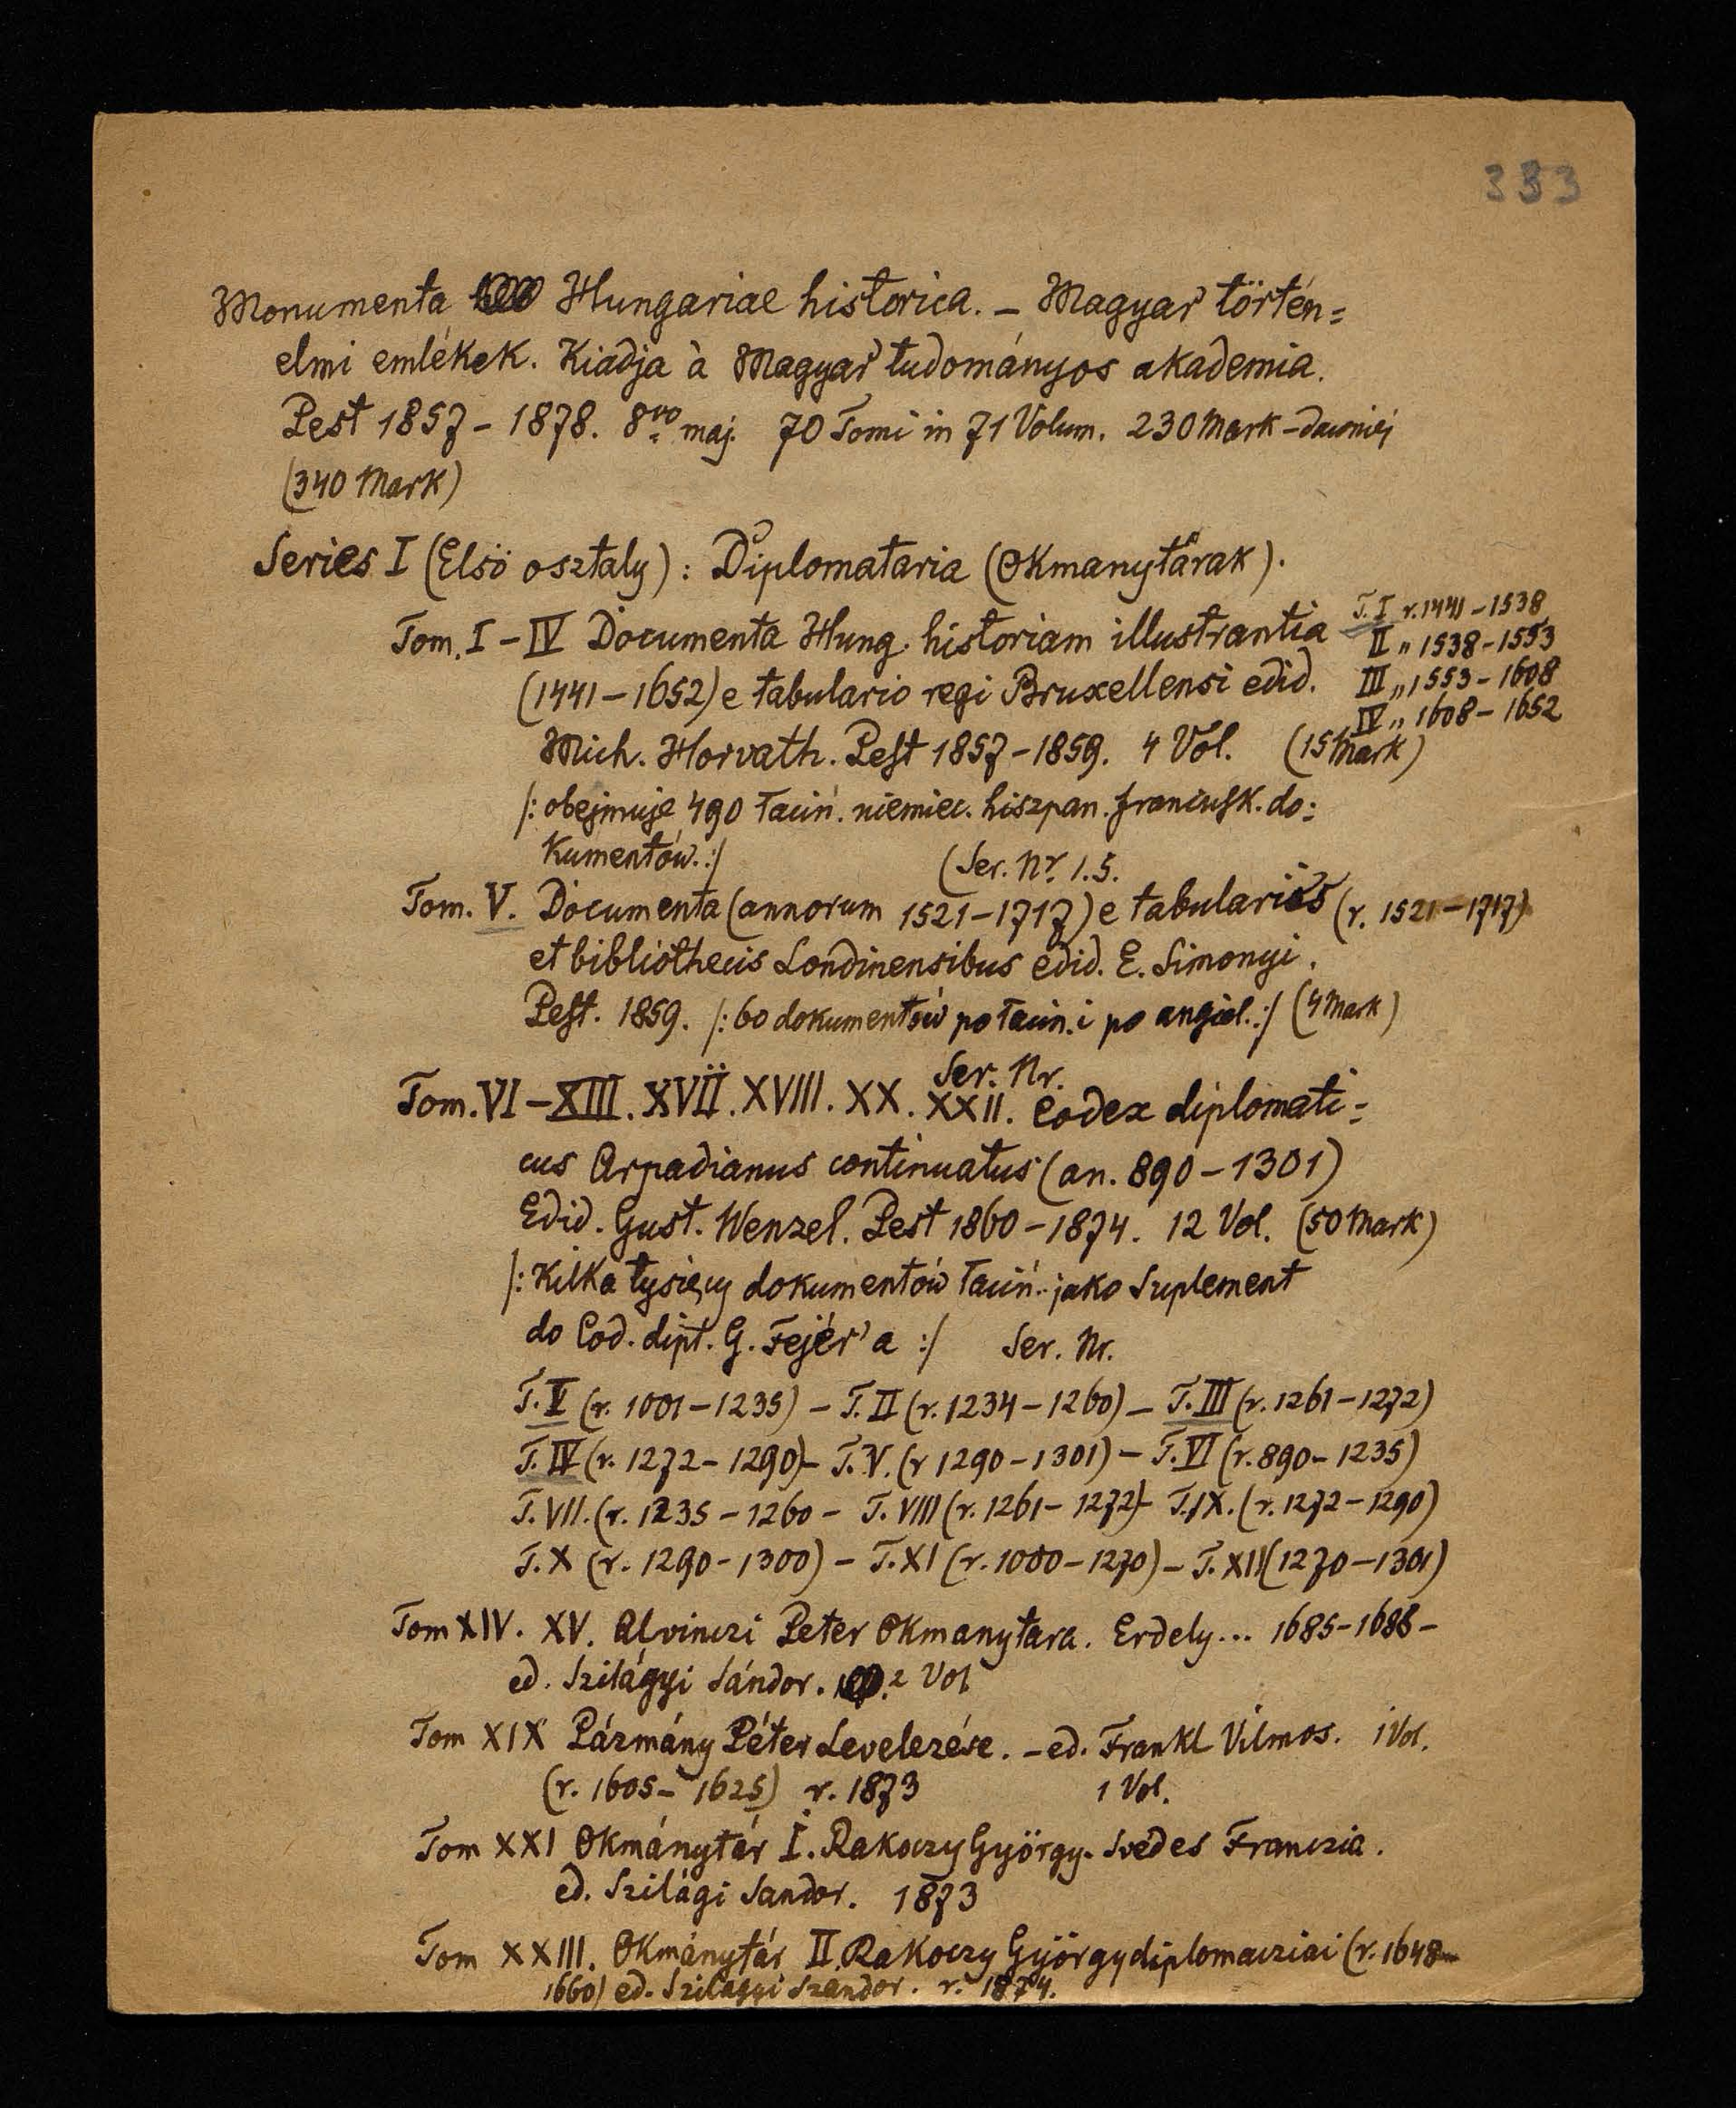 333
Monumenta Hungariae historica. – Magyar történ=
elmi emlékek. Kiadja à Magyar tudományos akademia.
Pest 1857 – 1878. 8vo maj. 70 Tomi in 71 Volum. 230 Mark – dawniej
(340 Mark)
Series I (Elsö osztaly): Diplomataria (Okmanytárak).
Tom. I – IV Documenta Hung. historiam illustrantia
(1441 – 1652) e tabulario regi Bruxellensi edid.
Mich. Horvath. Pest 1857 – 1859. 4 Vol. (15 Mark)
T. I r. 1441 – 1538
II „ 1538 – 1553
III „ 1553 – 1608
IV „ 1608 – 1652
/: obejmuje 490 łaciń. niemiec. hiszpan. francusk. do=
kumentów. :/
(Ser. Nr. 1.5.
Tom. V. Documenta (annorum 1521 – 1717) e tabulariis (r. 1521 – 1717)
et bibliothecis Londinensibus edid. E. Simonyi.
Pest. 1859. /: 60 dokumentów po łacin. i po angiel. :/ (4 Mark)
Ser. Nr.
Tom. VI – XIII. XVII. XVIII. XX. XXII. Codex diplomati=
cus Arpadianus continuatus (an. 890 – 1301)
Edid. Gust. Wenzel. Pest 1860 – 1874. 12 Vol. (50 Mark)
/: Kilka tysięcy dokumentów łaciń. jako Suplement
do Cod. dipl. G. Fejér'a :/ Ser. Nr.
T. I (r. 1001 – 1235) – T. II (r. 1234 – 1260) – T. III (r. 1261 – 1272)
T. IV (r. 1272 – 1290) – T. V. (r 1290 – 1301) – T. VI (r. 890 – 1235)
T. VII. (r. 1235 – 1260 – T. VIII (r. 1261 – 1272) – T. IX. (r. 1272 – 1290)
T. X (r. 1290 – 1300) – T. XI (r. 1000 – 1270) – T. XII (1270 – 1301)
Tom XIV. XV. Alvinczi Peter Okmanytara. Erdely... 1685 – 1688 –
ed. Szilágyi Sándor. 2 Vol
Tom XIX Pázmány Péter Levelezése. – ed. Frankl Vilmos. 1 Vol.
(r. 1605 – 1625) r. 1873 1 Vol.
Tom XXI Okmánytár I. Rakoczy György. Svédes Franczia.
ed. Szilági Sandor. 1873
Tom XXIII. Okmánytár II. Rakoczy György diplomacziai (r. 1648 –
1660) ed. Szilagyi Szandor. r. 1874.